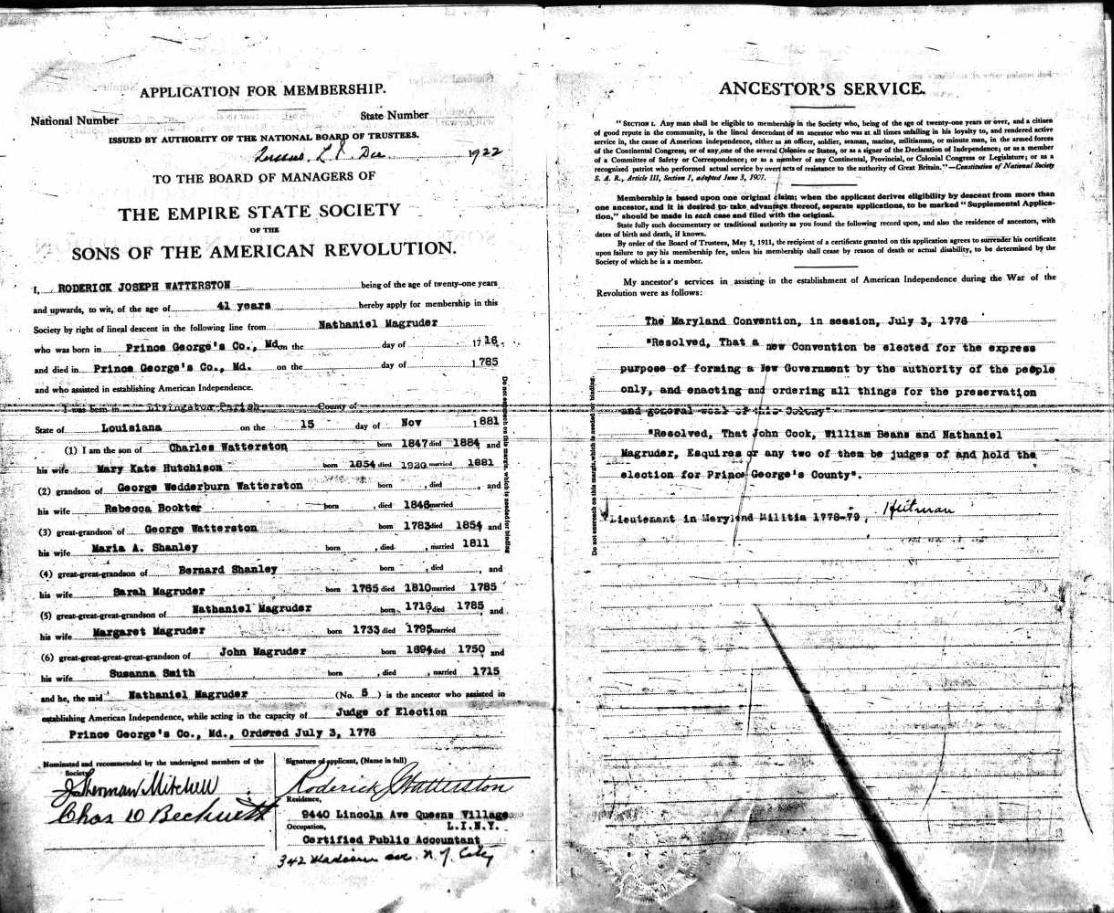 APPLICATION FOR MEMBERSHIP.
National Number State Number
ISSUED BY AUTHORITY OF THE NATIONAL BOARD OF TRUSTEES.
Dec 1922
TO THE BOARD OF MANAGERS OF
THE EMPIRE STATE SOCIETY
OF THE
SONS OF THE AMERICAN REVOLUTION.
I, RODERICK JOSEPH WATTERSTON being of the age of twenty-one years
and upwards, to wit, of the age of 41 years hereby apply for membership in this
Society by right of lineal descent in the following line from Nathaniel Magruder
who was born in Prince George's Co., Md. on the day of 1716.
and died in Prince George's Co., Md. on the day of 1785
and who assisted in establishing American Independence.
I was born in Livingston Parish County of
State of Louisiana on the 15 day of Nov 1881
(1) I am the son of Charles Watterston born 1847 died 1884 and
his wife Mary Kate Hutchison born 1854 died 1920 married 1881
(2) grandson of George Wedderburn Watterston born , died , and
his wife Rebecca Bookter born , died 1846 married
(3) great-grandson of George Watterston born 1783 died 1854 and
his wife Maria A. Shanley born , died , married 1811
(4) great-great-grandson of Bernard Shanley born , died , and
his wife Sarah Magruder born 1765 died 1810 married 1785
(5) great-great-great-grandson of Nathaniel Magruder born 1716 died 1785 and
his wife Margaret Magruder born 1733 died 1795 married
(6) great-great-great-great-grandson of John Magruder born 1694 died 1750 and
his wife Susanna Smith born , died , married 1715
and he, the said Nathaniel Magruder (No. 5 ) is the ancestor who assisted in
establishing American Independence, while acting in the capacity of Judge of Election
Prince George's Co., Md., Ordered July 3, 1776
Nominated and recommended by the undersigned members of the
Society
J Sherman Mitchell
Chas D Beckwith
Signature of applicant, (Name in full)
Roderick J Watterston
Residence,
9440 Lincoln Ave Queens Village
Occupation, L.I.N.Y.
Certified Public Accountant
342 Madison ave. N.Y. City
Do not encroach on this margin, which is needed for binding
ANCESTOR'S SERVICE.
"SECTION 1. Any man shall be eligible to membership in the Society who, being of the age of twenty-one years or over, and a citizen
of good repute in the community, is the lineal descendant of an ancestor who was at all times unfailing in his loyalty to, and rendered active
service in, the cause of American Independence, either as an officer, soldier, seaman, marine, militiaman, or minute man, in the armed forces
of the Continental Congress, or of any one of the several Colonies or States, or as a signer of the Declaration of Independence; or as a member
of a Committee of Safety or Correspondence; or as a member of any Continental, Provincial, or Colonial Congress or Legislature; or as a
recognized patriot who performed actual service by overt acts of resistance to the authority of Great Britain."—Constitution of National Society
S. A. R., Article III, Section 1, adopted June 3, 1907.
Membership is based upon one original claim; when the applicant derives eligibility by descent from more than
one ancestor, and it is desired to take advantage thereof, separate applications, to be marked "Supplemental Applica-
tion," should be made in each case and filed with the original.
State fully such documentary or traditional authority as you found the following record upon, and also the residence of ancestors, with
dates of birth and death, if known.
By order of the Board of Trustees, May 1, 1911, the recipient of a certificate granted on this application agrees to surrender his certificate
upon failure to pay his membership fee, unless his membership shall cease by reason of death or actual disability, to be determined by the
Society of which he is a member.
My ancestor's services in assisting in the establishment of American Independence during the War of the
Revolution were as follows:
The Maryland Convention, in session, July 3, 1776
"Resolved, That a new Convention be elected for the express
purpose of forming a New Government by the authority of the people
only, and enacting and ordering all things for the preservation
and general weal of this Colony"
"Resolved, That John Cook, William Beans and Nathaniel
Magruder, Esquires or any two of them be judges of and hold the
election for Prince George's County".
Lieutenant in Maryland Militia 1778-79, Heitman
Do not encroach on this margin, which is needed for binding.